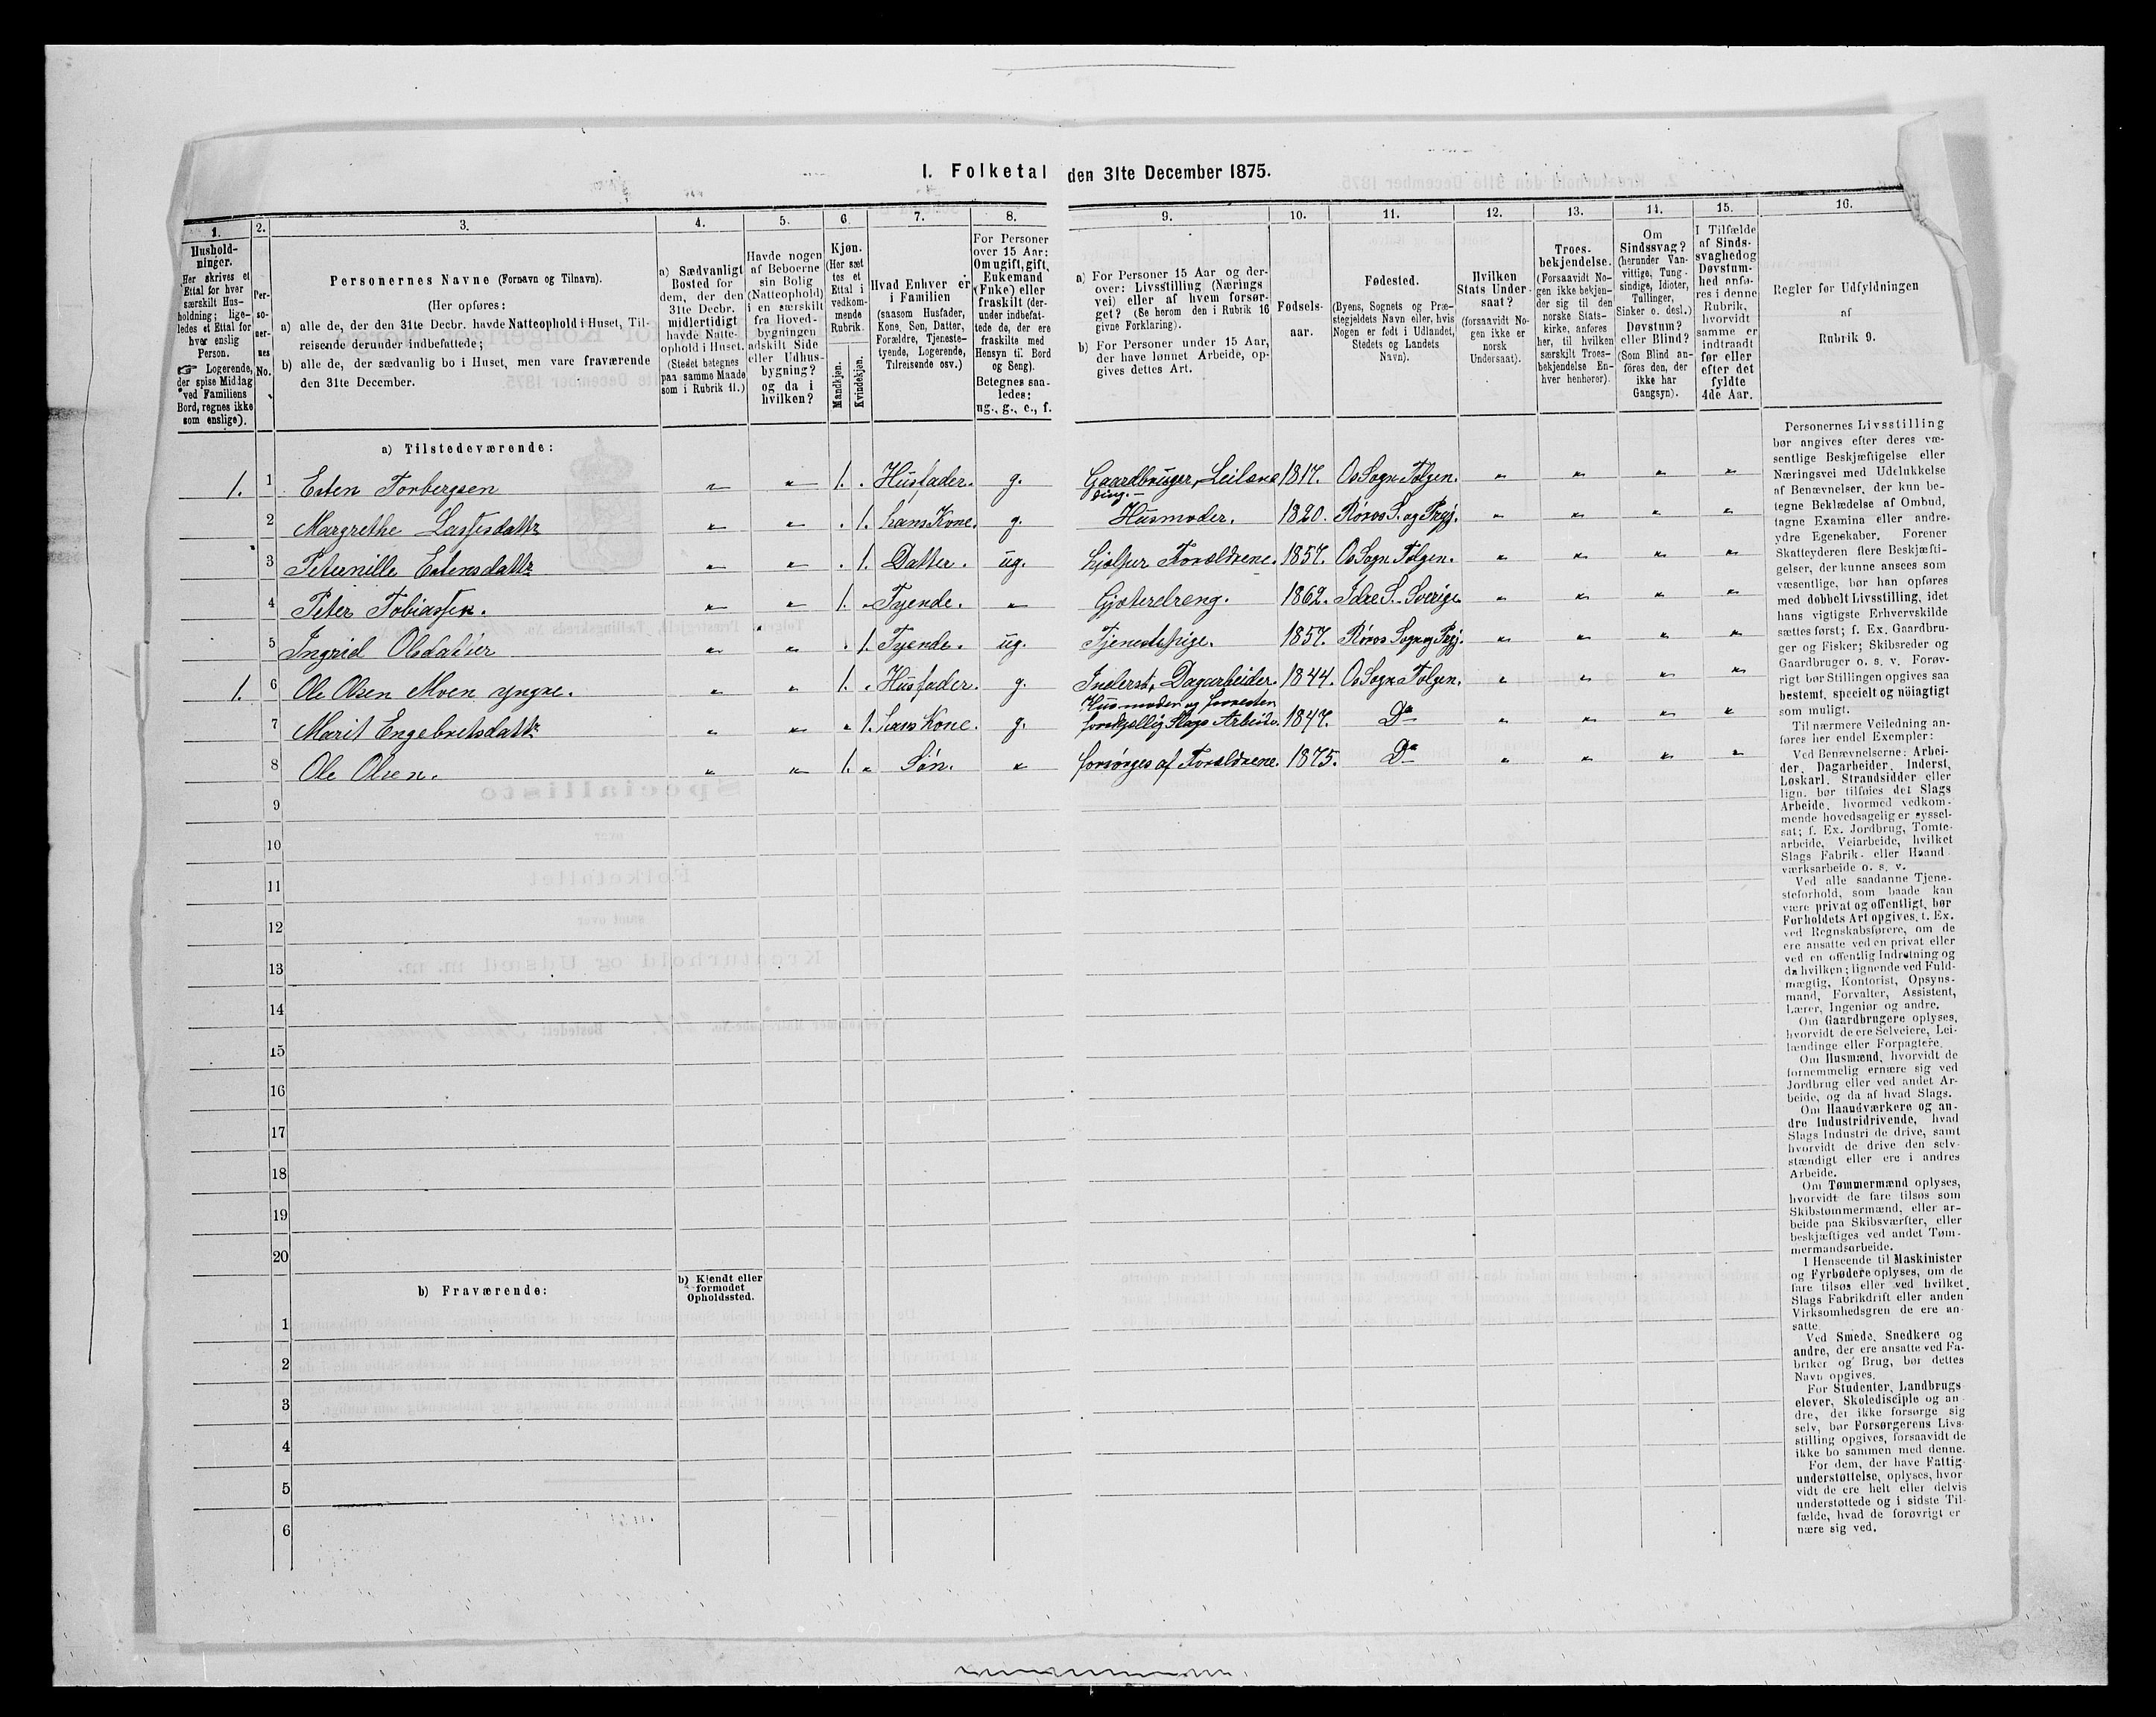 1. Folketal den 31te December 1875.
1. 2. 3. 4. 5. 6. 7. 8. 9. 10. 11. 12. 13. 14. 15. 16.
Hushold-
ninger.
Her skrives et
Ettal for hver
særskilt Hus-
holdning; lige-
ledes et Ettal for
hver enslig
Person.
☞ Logerende,
der spise Middag
ved Familiens
Bord, regnes ikke
som enslige).
Per-
so-
ner-
nes
No.
Personernes Navne (Fornavn og Tilnavn).
(Her opføres:
a) alle de, der den 31te Decbr. havde Natteophold i Huset, Til-
reisende derunder indbefattede;
b) alle de, der sædvanlig bo i Huset, men vare fraværende
den 31te December.
a) Sædvanligt
Bosted for
dem, der den
31te Decbr.
midlertidigt
havde Natte-
ophold i Huset.
(Stedet betegnes
paa samme Maade
som i Rubrik 11.)
Havde nogen
af Beboerne
sin Bolig
(Natteophold)
i en særskilt
fra Hoved-
bygningen
adskilt Side
eller Udhus-
bygning?
og da i
hvilken?
Kjøn.
(Her sæt
tes et
Ettal i
vedkom-
mende
Rubrik.
Mandkjøn.
Kvindekjøn.
Hvad Enhver er
i Familien
(saasom Husfader,
Kone, Søn, Datter,
Forældre, Tjeneste-
tyende, Logerende,
Tilreisende osv.)
For Personer
over 15 Aar:
Om ugift, gift,
Enkemand
(Enke) eller
fraskilt (der-
under indbefat-
tede de, der ere
fraskilte med
Hensyn til Bord
og Seng).
Betegnes saa-
ledes:
ug., g., e., f.
a) For Personer 15 Aar og der-
over: Livsstilling (Nærings
vei) eller af hvem forsør-
get? (Se herom den i Rubrik 16
givne Forklaring).
b) For Personer under 15 Aar,
der have lønnet Arbeide, op-
gives dettes Art.
Fødsels-
aar.
Fødested.
(Byens, Sognets og Præ-
stegjeldets Navn eller, hvis
Nogen er født i Udlandet,
Stedets og Landets
Navn).
Hvilken
Stats Under-
saat?
(forsaavidt No-
gen ikke er
norsk
Undersaat).
Troes-
bekjendelse.
(Forsaavidt No-
gen ikke bekjen-
der sig til den
norske Stats-
kirke, anføres
her, til hvilken
særskilt Troes-
bekjendelse En-
hver henhører).
Om
Sindssvag?
(herunder Van-
vittige, Tung-
sindige, Idioter,
Tullinger,
Sinker o. desl.)
Døvstum?
eller Blind?
(Som Blind an-
føres den, der
ikke har
Gangsyn).
I Tilfælde
af Sinds-
svaghed og
Døvstum-
hed anfø-
res i denne
Rubrik,
hvorvidt
samme er
indtraadt
før eller
efter det
fyldte
4de Aar.
Regler for Udfyldningen
af
Rubrik 9.
a) Tilstedeværende:
1. 1 Esten Torbergsen " " 1. . Husfader. g. Gaardbruger, Leilæn- 1817. Os Sogn Tolgen. " " " "
ding.
2 Margrethe Lassesdattr " " . 1. hans Kone. g. Husmoder. 1820. Røros S. og Prgj. " " " "
3 Peternille Estensdattr " " . 1. Datter. ug. hjelper Forældrene. 1857. Os Sogn Tolgen. " " " "
4 Peter Tobiassen. " " 1. " Tyende. " Gjæterdreng. 1862. Idre S. Sverige. " " " "
5 Ingrid Olsdatter " " . 1. Tyende. ug. Tjenestepige. 1857. Røros Sogn og Prgj. " " " "
1. 6 Ole Olsen Moen yngre. " " 1. " Husfader. g. Inderst, Dagarbeider. 1844. Os Sogn Tolgen. " " " "
Husmoder og foresten
7 Marit Engebretsdattr " " " 1. hans Kone. g. forskjellig Slags Arbeide. 1847. Do " " " "
8 Ole Olsen. " " 1. " Søn. " forsørges af Forældrene. 1875. Do " " " "
9
10
11
12
13
14
15
16
17
18
19
20
b) Fraværende:
b) Kjendt eller
formodet
Opholdssted.
1
2
3
4
5
6
Personernes Livsstilling
bør angives efter deres væ-
sentlige Beskjæftigelse eller
Næringsvei med Udelukkelse
af Benævnelser, der kun be-
tegne Beklædelse af Ombud,
tagne Examina eller andre
ydre Egenskaber. Forener
Skatteyderen flere Beskjæfti-
gelser, der kunne ansees som
væsentlige, bør han opføres
med dobbelt Livsstilling, idet
hans vigtigste Erhvervskilde
sættes først; f. Ex. Gaardbru-
ger og Fisker; Skibsreder og
Gaardbruger o. s. v. Forøv-
rigt bør Stillingen opgives saa
bestemt, specielt og nøiagtigt
som muligt.
Til nærmere Veiledning an-
føres her endel Exempler:
Ved Benævnelserne: Arbei-
der, Dagarbeider, Inderst,
Løskarl, Strandsidder eller
lign. bør tilføies det Slags
Arbeide, hvormed vedkom-
mende hovedsagelig er syssel-
sat; f. Ex. Jordbrug, Tomte-
arbeide, Veiarbeide, hvilket
Slags Fabrik- eller Haand-
værksarbeide o. s. v.
Ved alle saadanne Tjene-
steforhold, som baade kan
være privat og offentligt, bør
Forholdets Art opgives, t. Ex.
ved Regnskabsførere, om de
ere ansatte ved en privat eller
ved en offentlig Indretning og
da hvilken; lignende ved Fuld-
mægtig, Kontorist, Opsyns-
mand, Forvalter, Assistent,
Lærer, Ingeniør og andre.
Om Gaardbrugere oplyses,
hvorvidt de ere Selveiere, Lei-
lændinge eller Forpagtere.
Om Husmænd, hvorvidt de
fornemmelig ernære sig ved
Jordbrug eller ved andet Ar-
beide, og da af hvad Slags.
Om Haandværkere og an-
dre Industridrivende, hvad
Slags Industri de drive, samt
hvorvidt de drive den selv-
stændigt eller ere i andres
Arbeide.
Om Tømmermænd oplyses,
hvorvidt de fare tilsøs som
Skibstømmermænd, eller ar-
beide paa Skibsværfter, eller
beskjæftiges ved andet Tøm-
mermandsarbeide.
I Henseende til Maskinister
og Fyrbødere oplyses, om de
fare tilsøs eller ved hvilket
Slags Fabrikdrift eller anden
Virksomhedsgren de ere an-
satte.
Ved Smede, Snedkere og
andre, der ere ansatte ved Fa-
briker og Brug, bør dettes
Navn opgives.
For Studenter, Landbrugs-
elever, Skoledisciple og an-
dre, der ikke forsørge sig
selv, bør Forsørgerens Livs-
stilling opgives, forsaavidt de
ikke bo sammen med denne.
For dem, der have Fattig-
understøttelse, oplyses, hvor-
vidt de ere helt eller delvis
understøttede og i sidste Til-
fælde, hvad de forøvrigt er
nære sig ved.